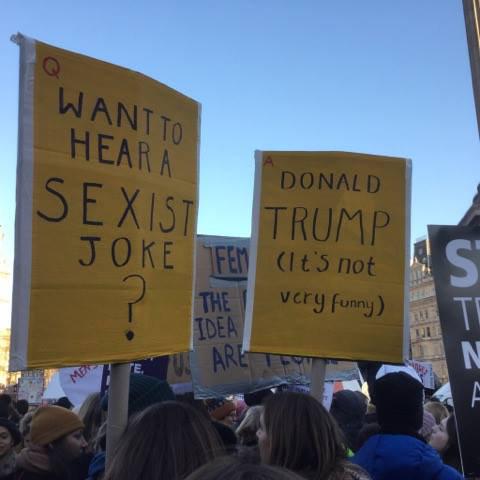 Q
WANT TO
HEAR A
SEXIST
JOKE
?
A
DONALD
TRUMP
(It's not
very funny)
FEM
THE
IDEA
ARE